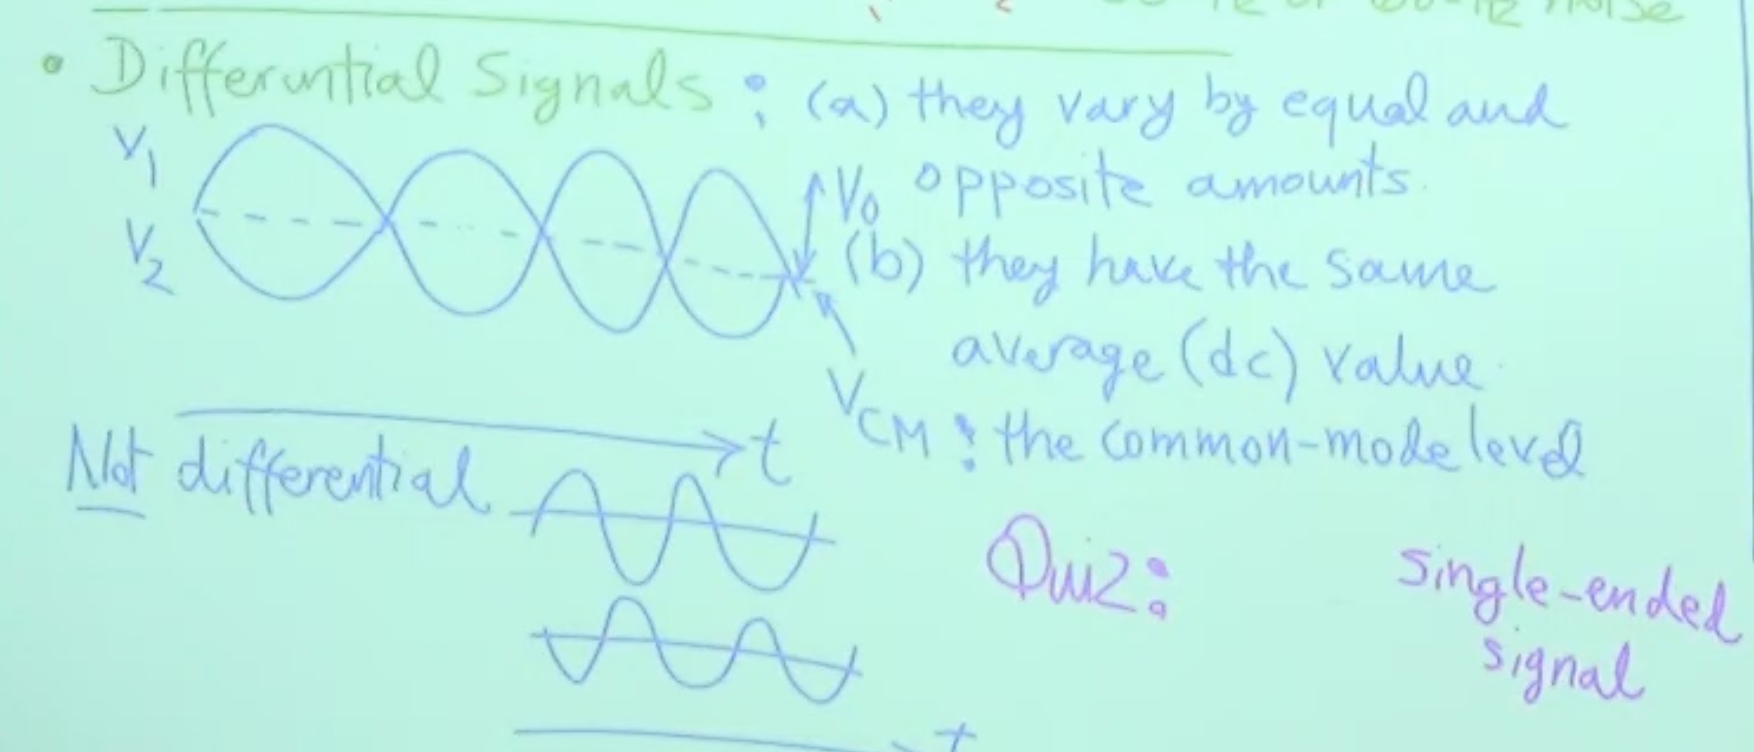 60-Hz noise
• Differential Signals : (a) they vary by equal and
V1
opposite amounts.
V0
V2
(b) they have the same
average (dc) value.
VCM : the common-mode level
t
Not differential
Quiz:
single-ended
signal
t